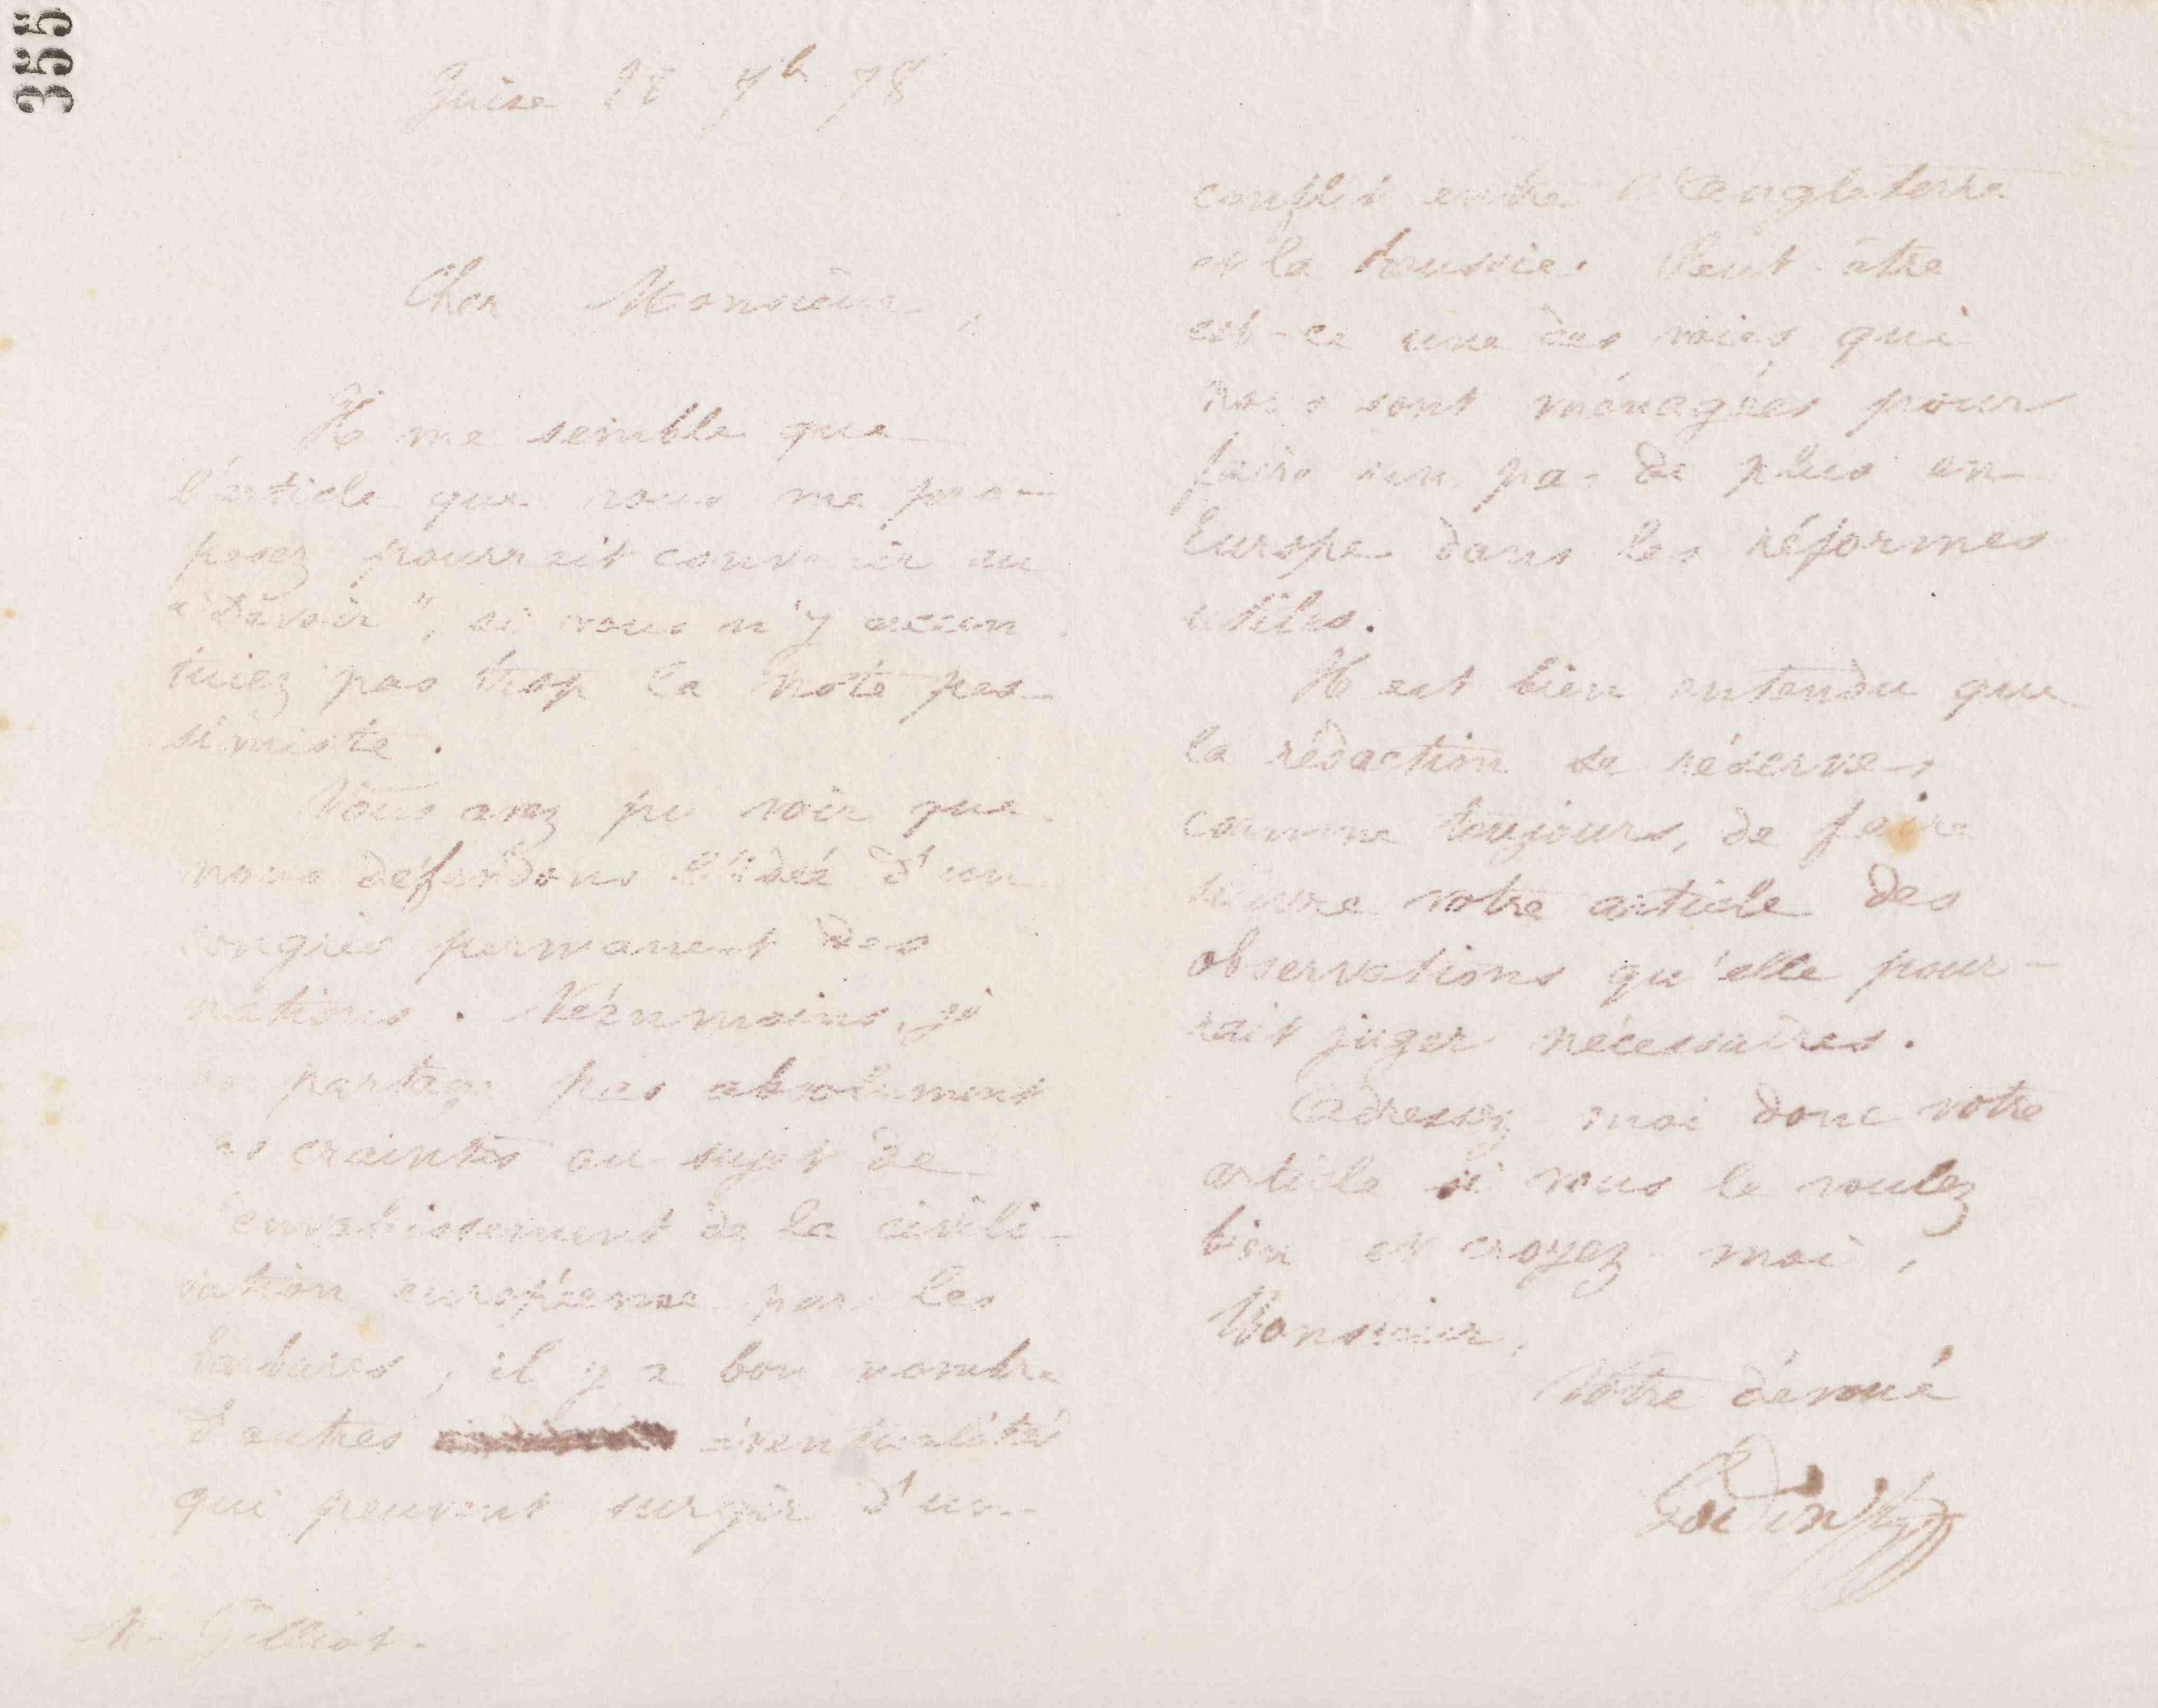 355
Guise 28 7b 78
Cher Monsieur,
Il me semble que
l'article que vous me pro-
posez pourrait convenir au
"Devoir", si vous n'y accen
tuiez pas trop la note pes-
simiste.
Vous avez pu voir que
nous défendons l'idée d'un
congrès permanent des
nations. Néanmoins, je
ne partage pas absolument
vos craintes au sujet de
l'envahissement de la civili-
sation européenne par les
barbares ; il y a bon nombre
d'autres éventualités
qui peuvent surgir d'un
M. Gilliot.
conflit entre l'angleterre
et la Russie. Peut-être
est-ce une des voies qui
nous sont ménagées pour
faire un pas de plus en
Europe dans les réformes
utiles.
Il est bien entendu que
la rédaction se réserve,
comme toujours, de faire
suivre votre article des
observations qu'elle pour-
rait juger nécessaires.
Adressez-moi donc votre
article si vous le voulez
bien et croyez-moi,
Monsieur,
Votre dévoué
Godin